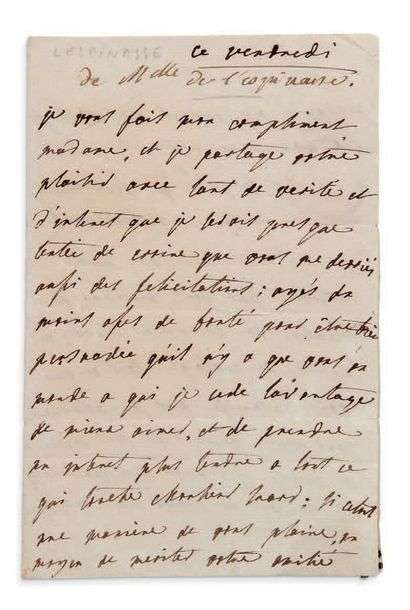 LESPINASSE
ce vendredi
de Melle de l'espinasse.
je vous fait mon compliment
madame, et je partage votre
plaisir avec tant de verité et
d'interet que je serois presque
tentée de croire que vous me devriés
aussi des felicitations; ayés du
moins assés de bonté pour être bien
persuadée qu'il n'y a que vous au
monde a qui je cede l'avantage
de mieux aimer, et de prendre
un interet plus tendre a tout ce
qui touche Monsieur Suard; si c'etoit
une maniere de vous plaire, un
moyen de meriter votre amitié